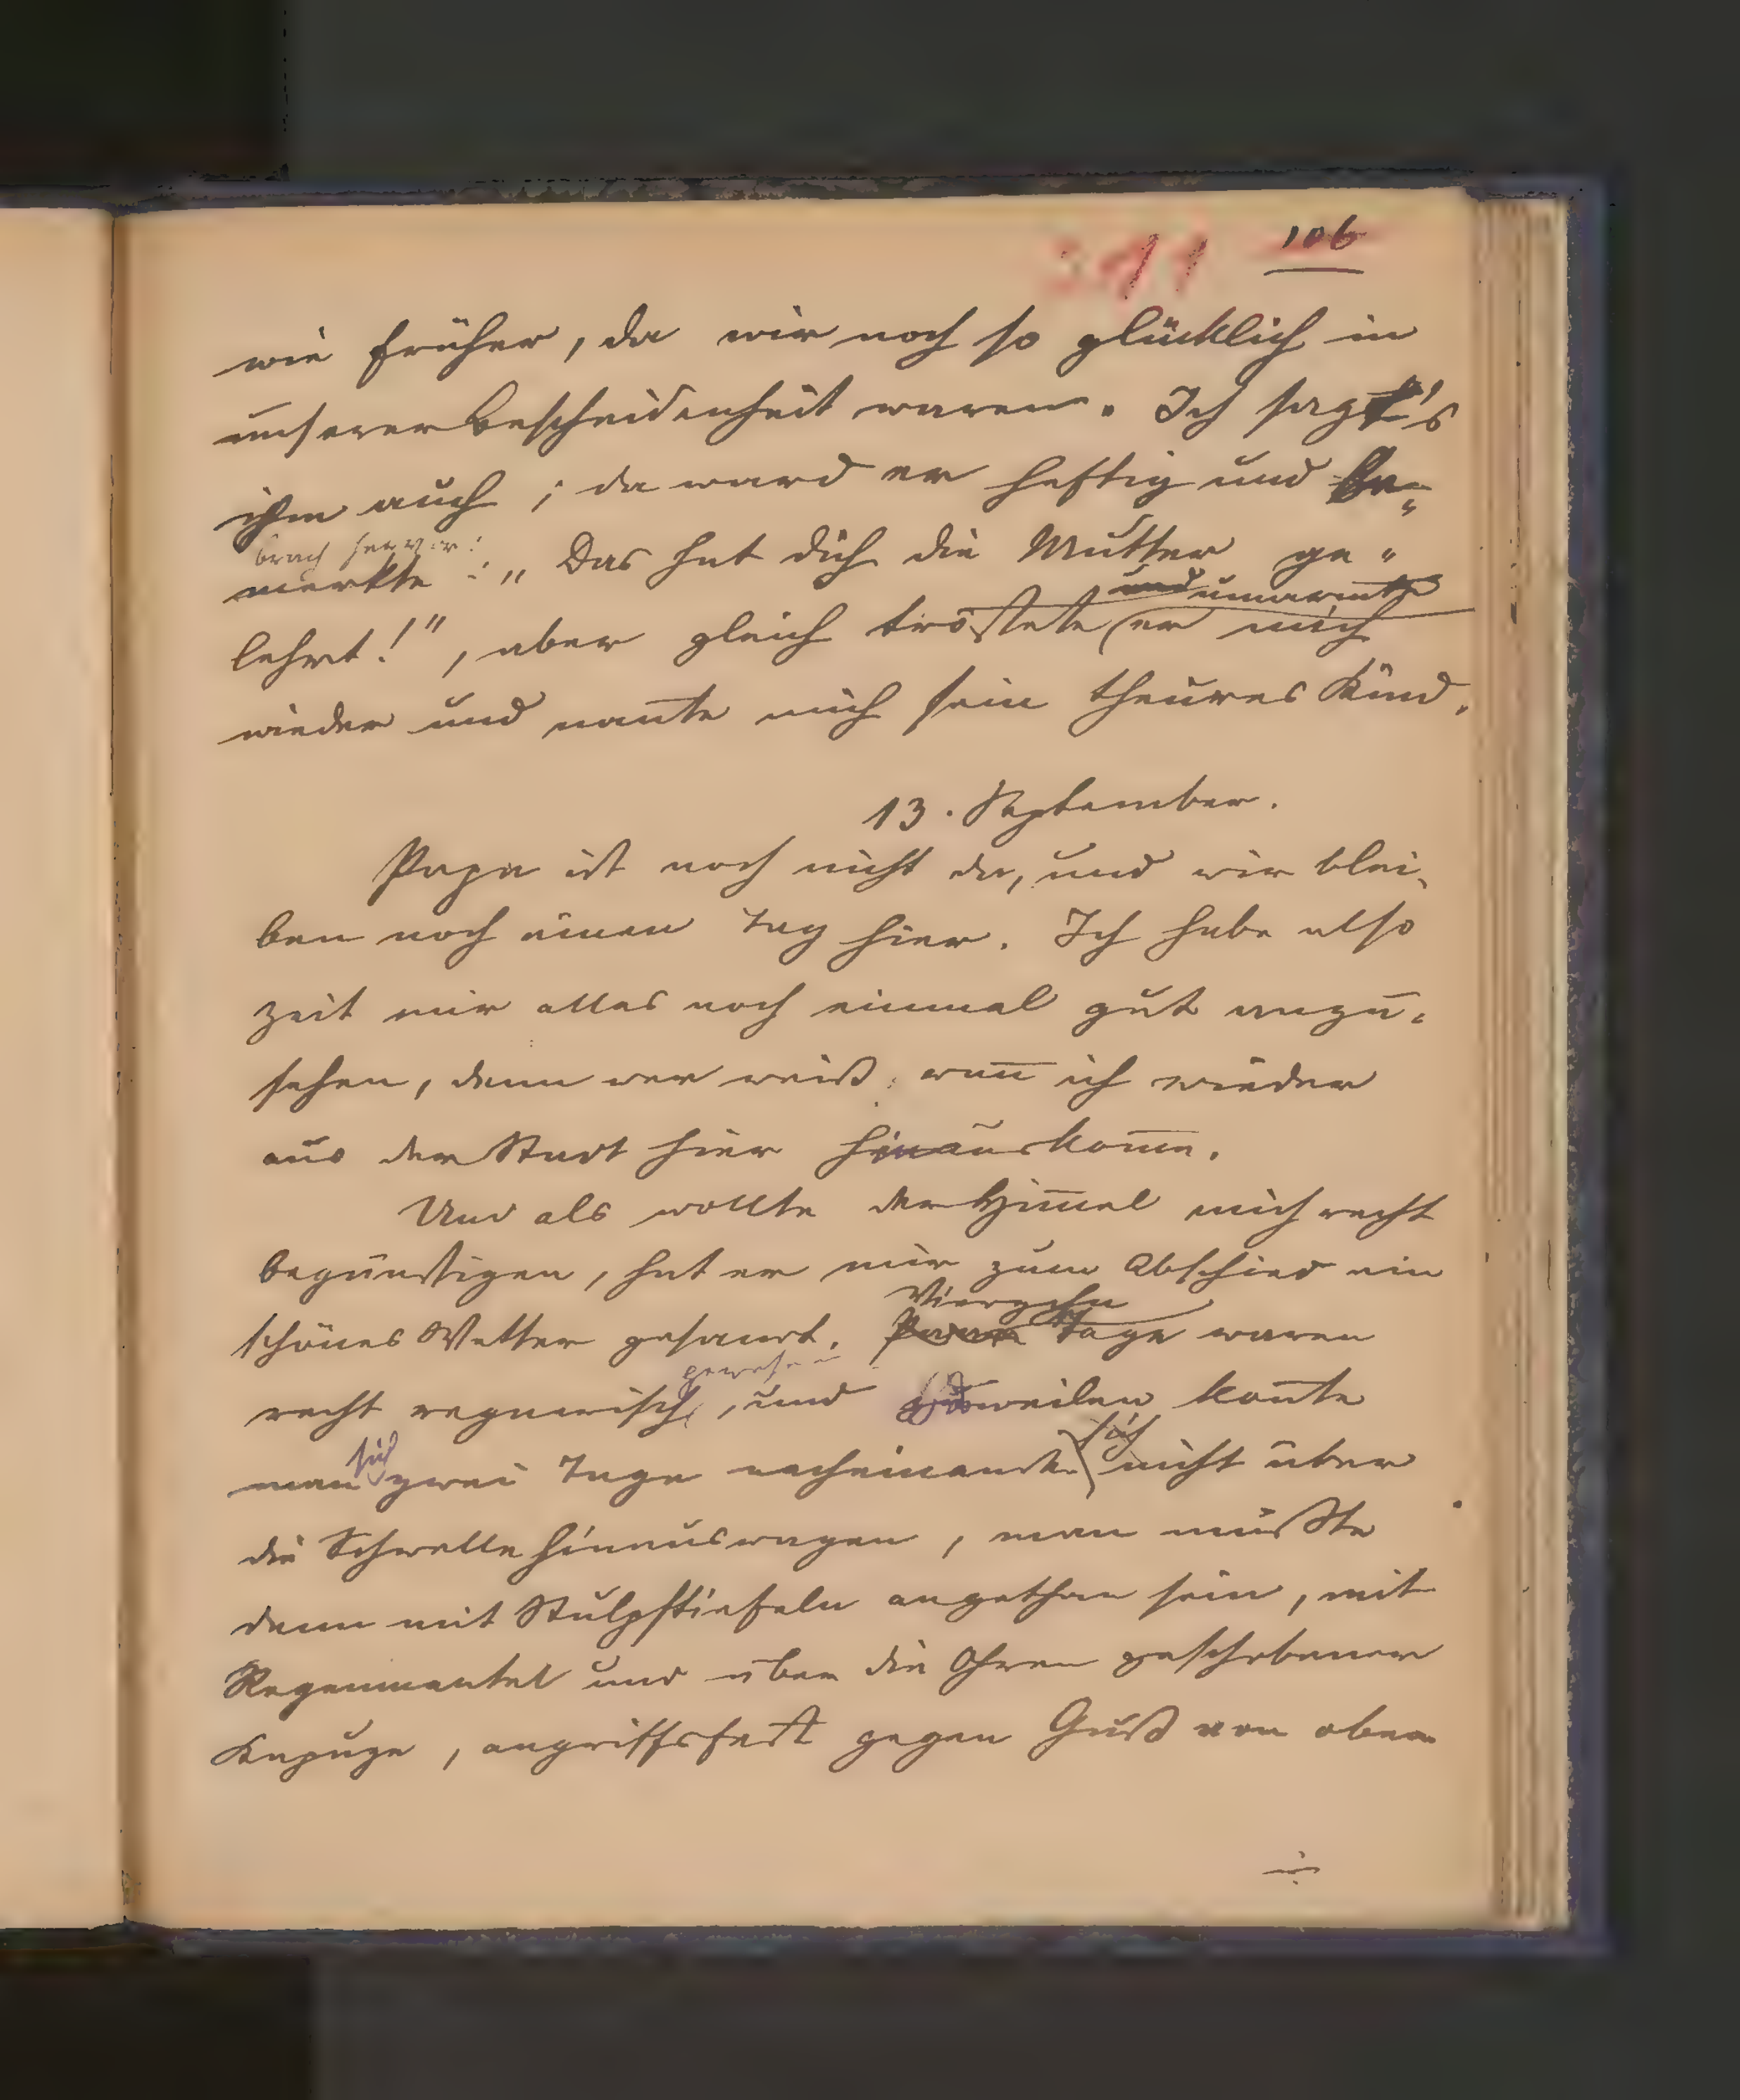 106
wie früher, da wir noch so glücklich in
unserer Bescheidenheit waren. Ich sagt's
ihm auch; da ward er heftig und be-
brach hervor:
merkte: „Das hat dich die Mutter ge-
und umarmte
lehrt!", aber gleich tröstete er mich
wieder und nan̄te mich sein theures Kind.
13. September.
Papa ist noch nicht da, und wir blei-
ben noch einen Tag hier. Ich habe also
Zeit mir alles noch einmal gut anzu-
sehen, denn wer weiß, wan̄ ich wieder
aus der Stadt hier hinauskom̄e.
Und als wollte der Him̄el mich recht
begünstigen, hat er mir zum Abschied ein
Vierzehn
schönes Wetter gesandt. Tage waren
gewesen
recht regnerisch, und weilen kon̄te
sich sich
man zwei Tage nacheinander nicht über
die Schwelle hinauswagen, man müßte
denn mit Stulpstiefeln angethan sein, mit
Regenmantel und über die Ohren geschobener
Kapuze, angriffsfest gegen Guß von oben